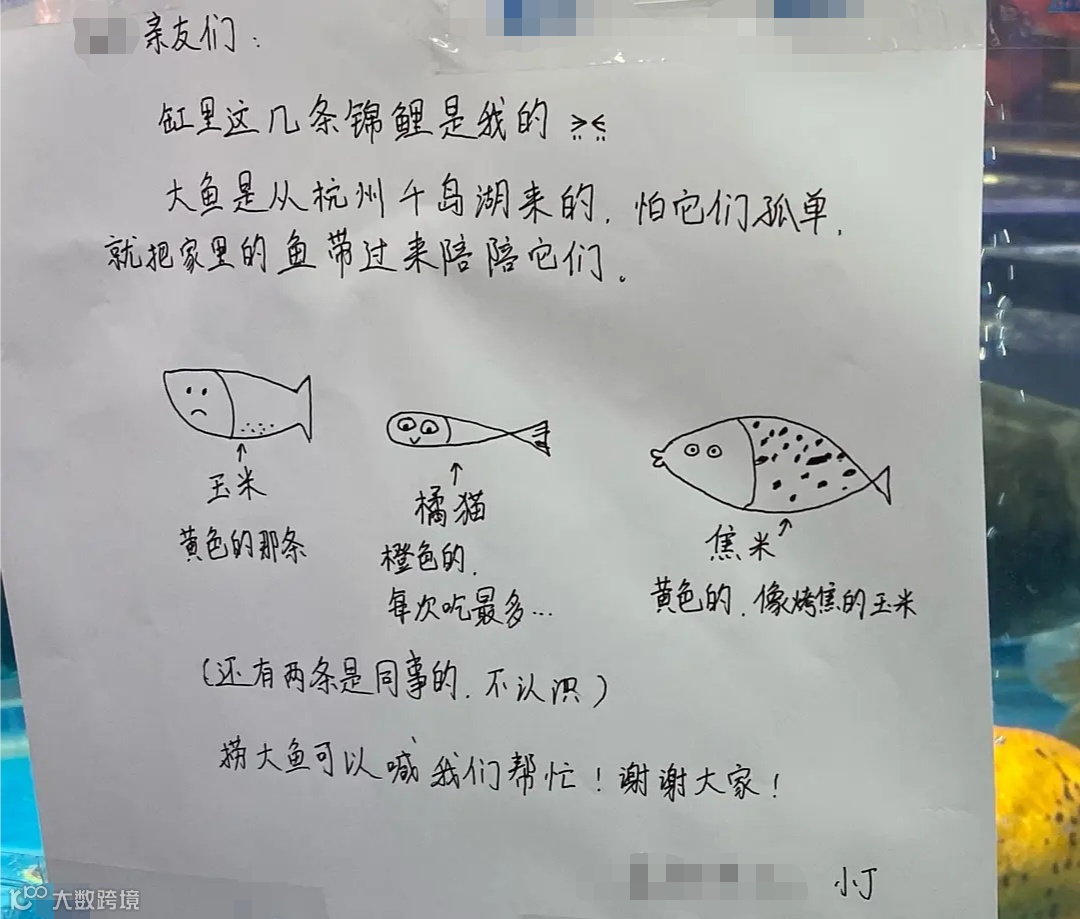 亲友们：
缸里这几条锦鲤是我的 ><
大鱼是从杭州千岛湖来的，怕它们孤单，
就把家里的鱼带过来陪陪它们。
玉米
黄色的那条
橘猫
橙色的，
每次吃最多…
焦米
黄色的，像烤焦的玉米
（还有两条是同事的，不认识）
捞大鱼可以喊我们帮忙！谢谢大家！
小丁
大数跨境